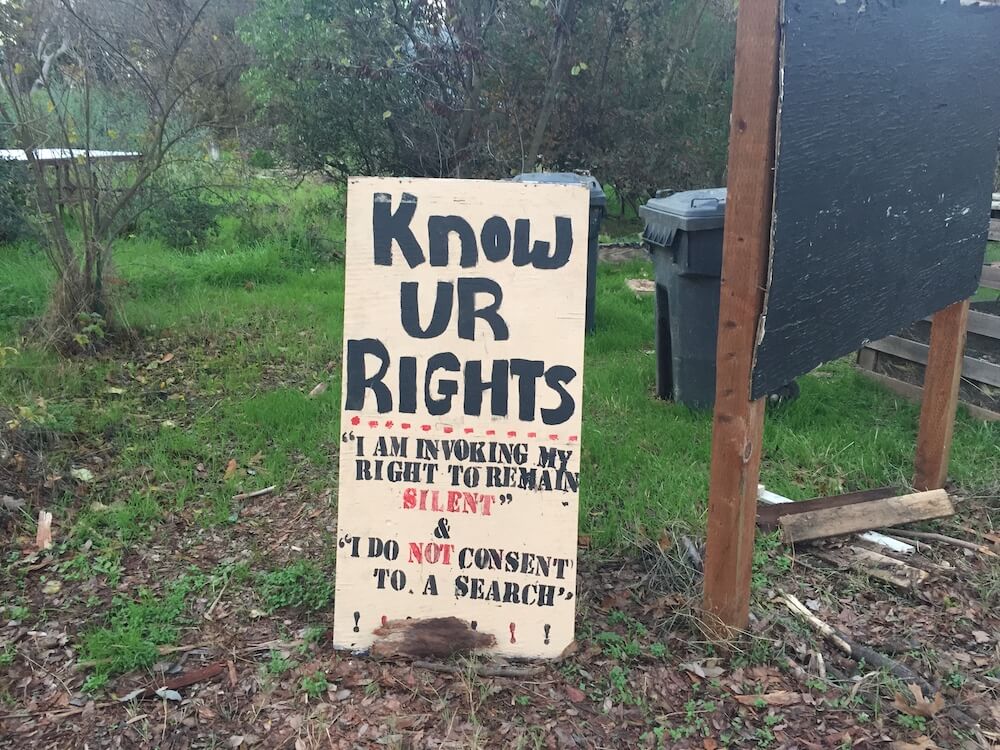 Know
UR
RIGHTS
“I AM INVOKING MY
RIGHT TO REMAIN
SILENT”
&
“I DO NOT CONSENT
TO A SEARCH”
! ! !